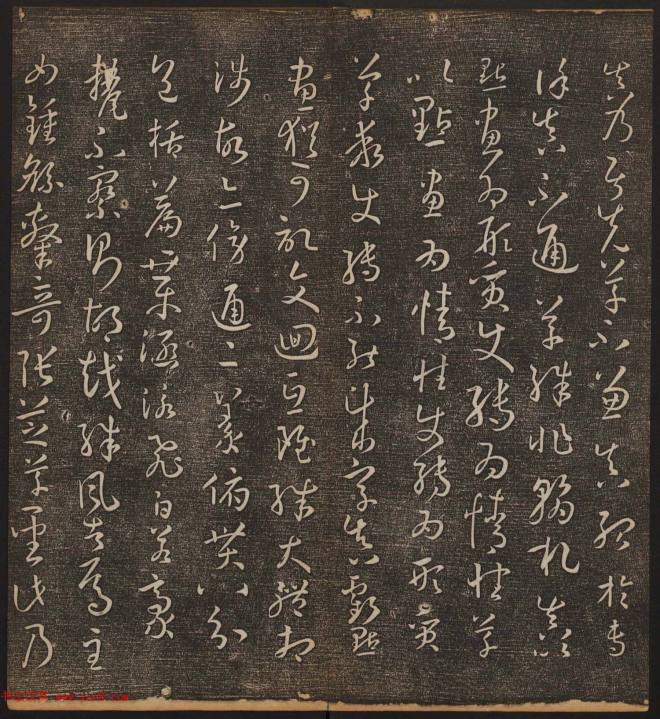 真乃居先草不兼真殆於專
謹真不通草殊非翰札真以
點畫為形質使轉為情性草
以點畫為情性使轉為形質
草乖使轉不能成字真虧點
畫猶可記文迴互雖殊大體相
涉故亦傍通二篆俯貫八分
包括篇章涵泳飛白若豪
釐不察則胡越殊風者焉至
如鍾繇隸奇張芝草聖此乃